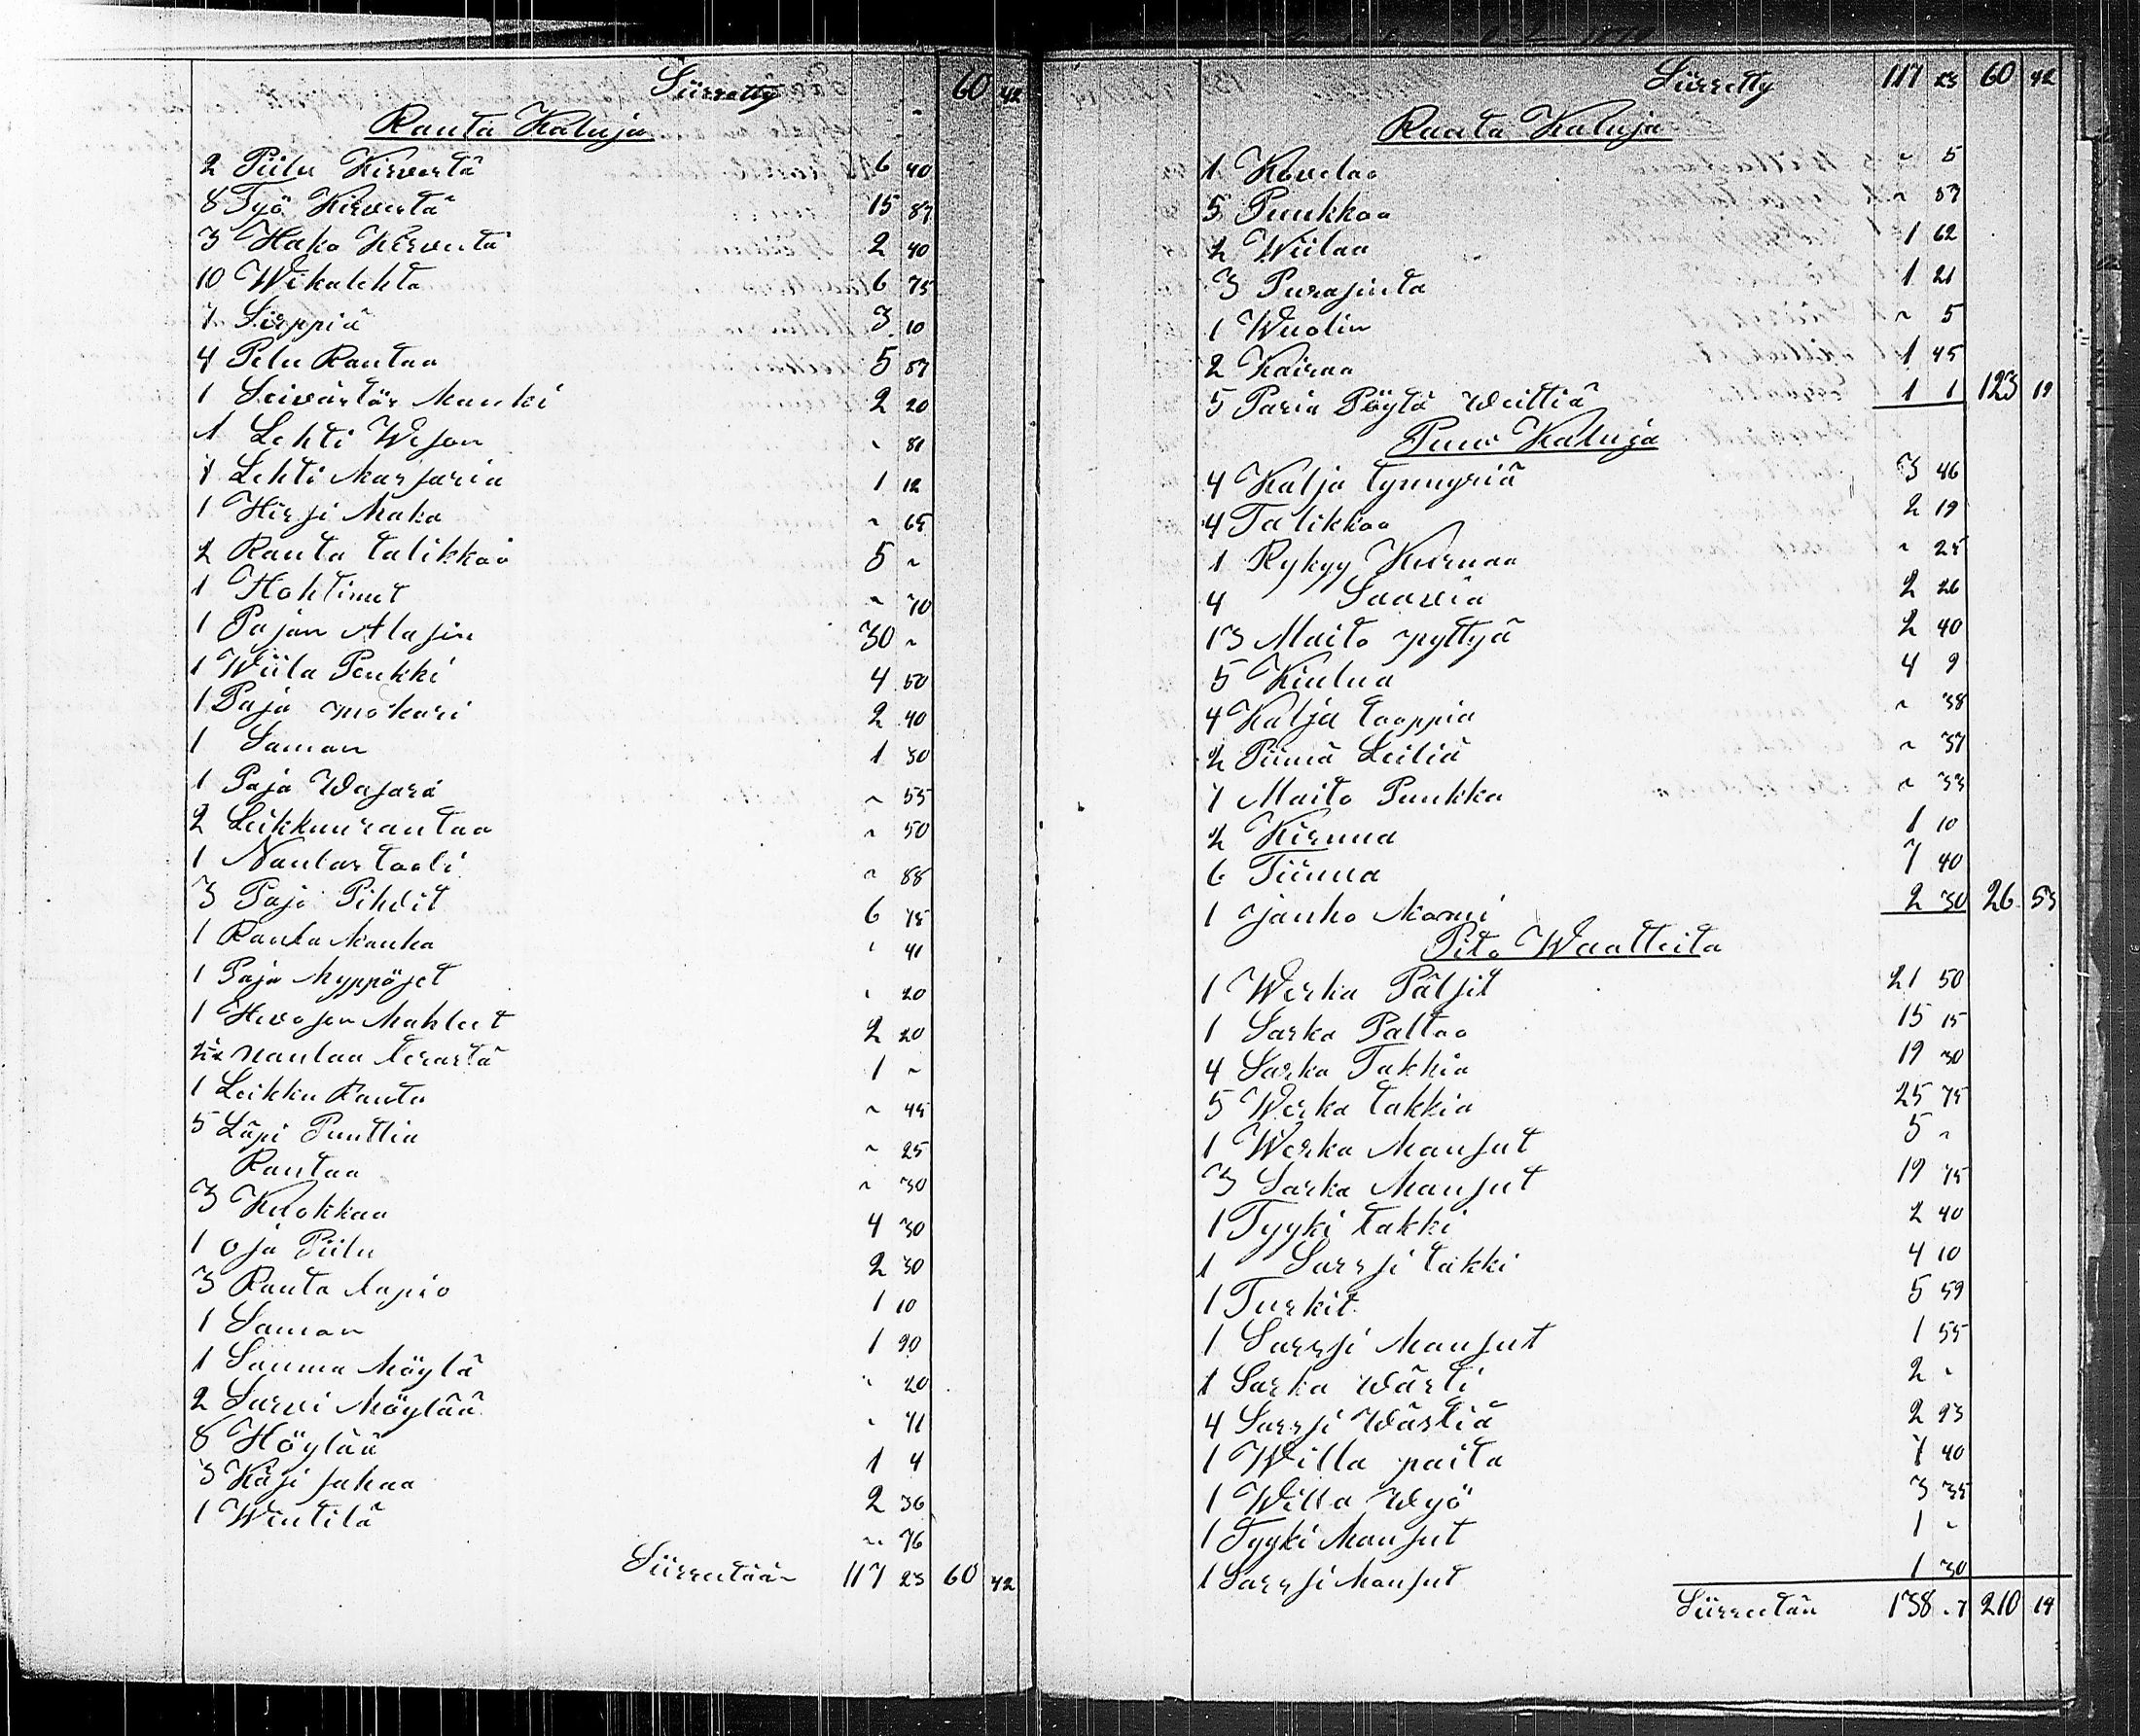 Siirretty 60 42
Rauta Kaluja
2 Piilu Kirvestä 6 40
8 Työ Kirvestä 15 87
3 Hako Kirvestä 2 40
10 Wikatehta 6 75
7 Sirppiä 3 10
4 Pelu Rautaa 5 87
1 Seivästös Mauki 2 20
1 Lehti Weson " 81
1 Lehti Marsaria 1 12
1 Hirsi Maka " 65
2 Rauta talikkoa 5 "
1 Hohtimet " 70
1 Pajan Alasin 30 "
1 Wiila Penkki 4 50
1 Paja mokari 2 40
1 Saman 1 30
1 Paja Wasara " 55
2 Leikkuurautaa " 50
1 Naulastooli " 88
3 Paja Pihdit 6 75
1 Rauta Kanka " 41
1 Paja Myppöset " 20
1 Hevosen Mahleet 2 20
naulaa terästä 1 "
1 Leikku Rauta " 45
5 Läpi Puuttia " 25
Rautaa " 30
3 Kuokkaa 4 30
1 oja Piilu 2 30
3 Rauta lapio 1 10
1 Saman 1 90
1 Sauma Möylä " 20
2 Sarvi Möylää " 41
8 Höylää 1 4
3 Käsi sahaa 2 36
1 Wintilä " 76
Siirretään 117 23 60 42
Siirretty 117 23 60 42
Rauta Kaluja
1 Kovelaa " 5
5 Puukkoa " 87
2 Wiilaa 1 62
3 Purasinta 1 21
1 Wuolin " 5
2 Kairaa 1 45
5 Paria Pöytä Weittiä 1 1 123 19
Puu Kaluja
4 Kalja tynnyriä 3 46
4 Talikkoa 2 19
1 Rykyy Kurnaa " 25
4 Saavia 2 26
13 Maito pyttyä 2 40
5 Kiulua 4 9
4 Kalja tooppia " 38
2 Piimä Leiliä " 37
7 Maito Punkka " 33
2 Kirnua 1 10
6 Tiinua 7 40
1 janho Momi 2 30 26 53
Pito Waatteita
1 Werka Päljit 21 50
1 Sarka Paltoo 15 15
4 Sarka Takkia 19 30
5 Werka takkia 25 75
1 Werka Mausut 5 "
3 Sarka Mausut 19 75
1 Tyyki takki 2 40
1 Sarssi takki 4 10
1 Turkit 5 59
1 Sarssi Mausut 1 55
1 Sarka Wästi 2 "
4 Sarssi Wästiä 2 93
1 Willa paita 7 40
1 Willa Wyö 3 35
1 Tyyki Mausut 1 "
1 Sarssi Mausut 1 30
Siirretän 138 . 7 210 14